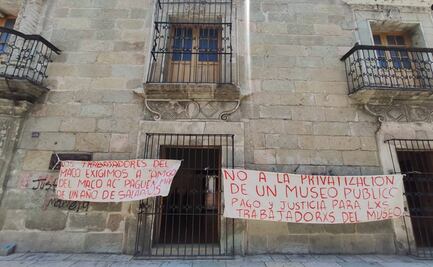 LOS TRABAJADORES DEL
MACO EXIGIMOS A "AMIGOS
DEL MACO AC PAGUEN
DE UN AÑO DE SALARIOS
NO A LA PRIVATIZACIÓN
DE UN MUSEO PÚBLICO
PAGO Y JUSTICIA PARA LXS
TRABAJADORXS DEL MUSEO